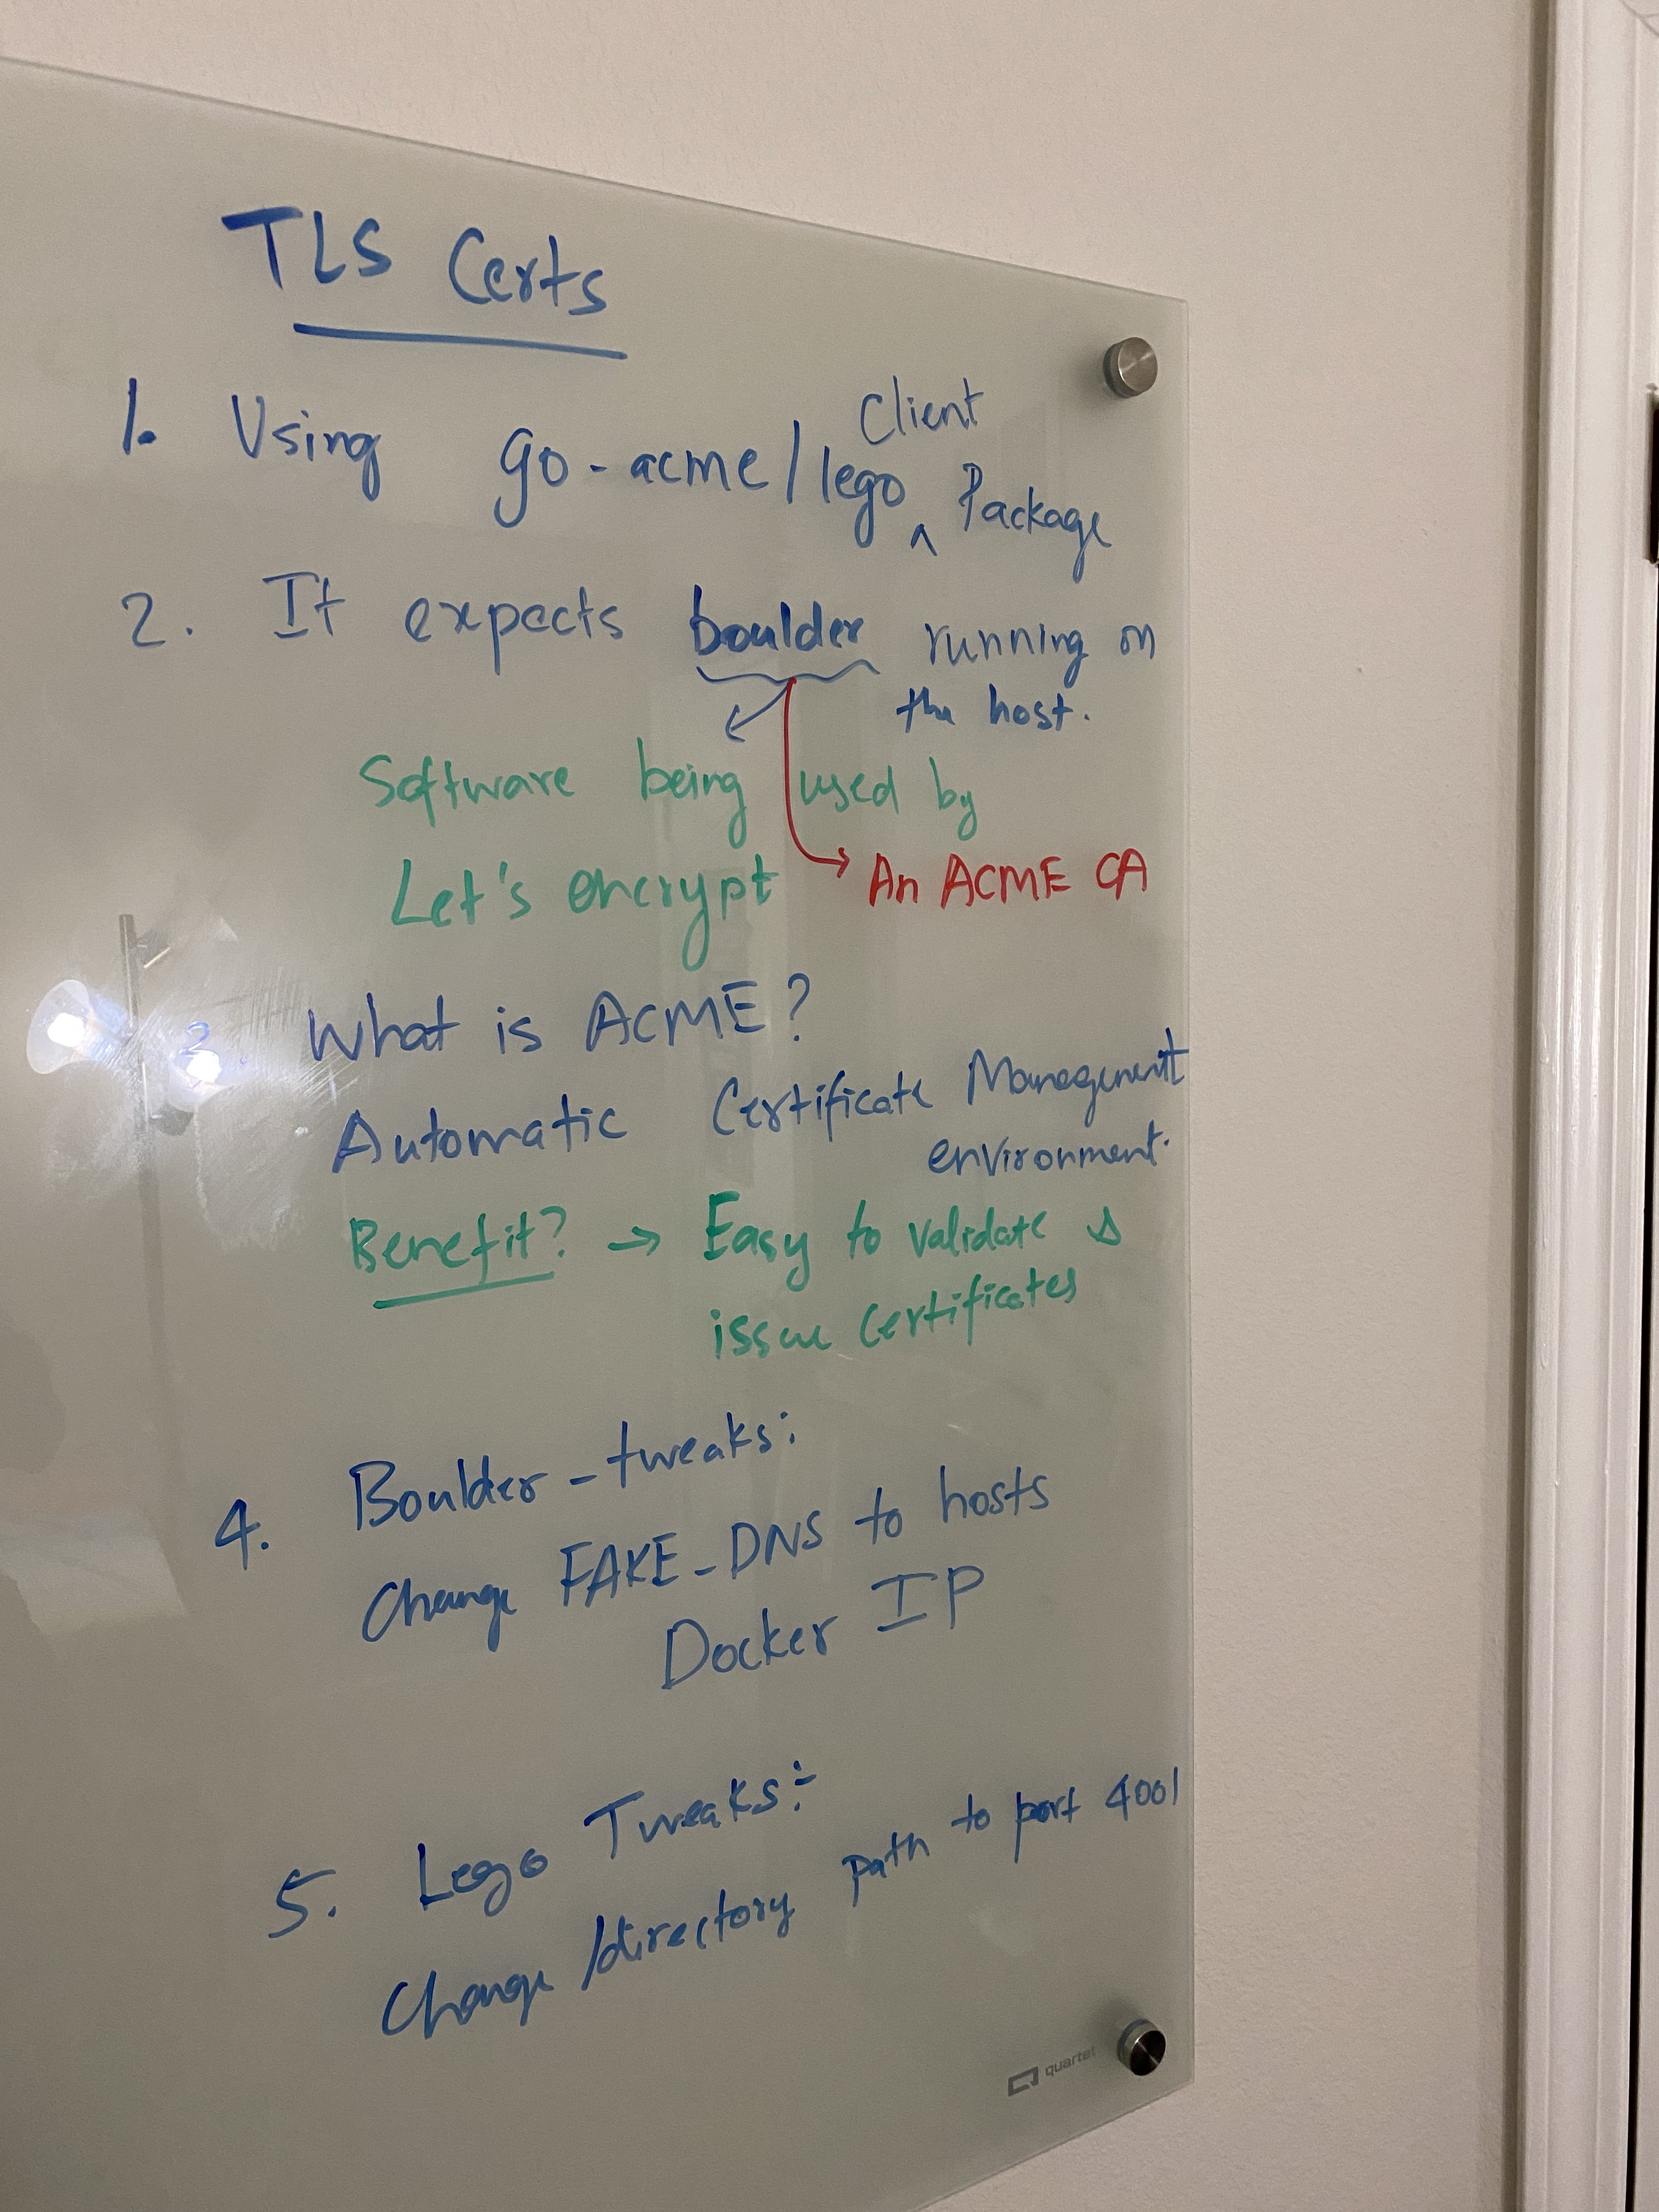 TLS Certs
1. Using go-acme/lego ^ Client Package
2. It expects boulder running on
the host.
Software being used by
Let's encrypt
An ACME CA
3. What is ACME?
Automatic Certificate Management
environment.
Benefit? → Easy to validate &
issue certificates
4. Boulder-tweaks:
Change FAKE_DNS to hosts
Docker IP
5. Lego Tweaks:
Change /directory path to port 4001
quartet